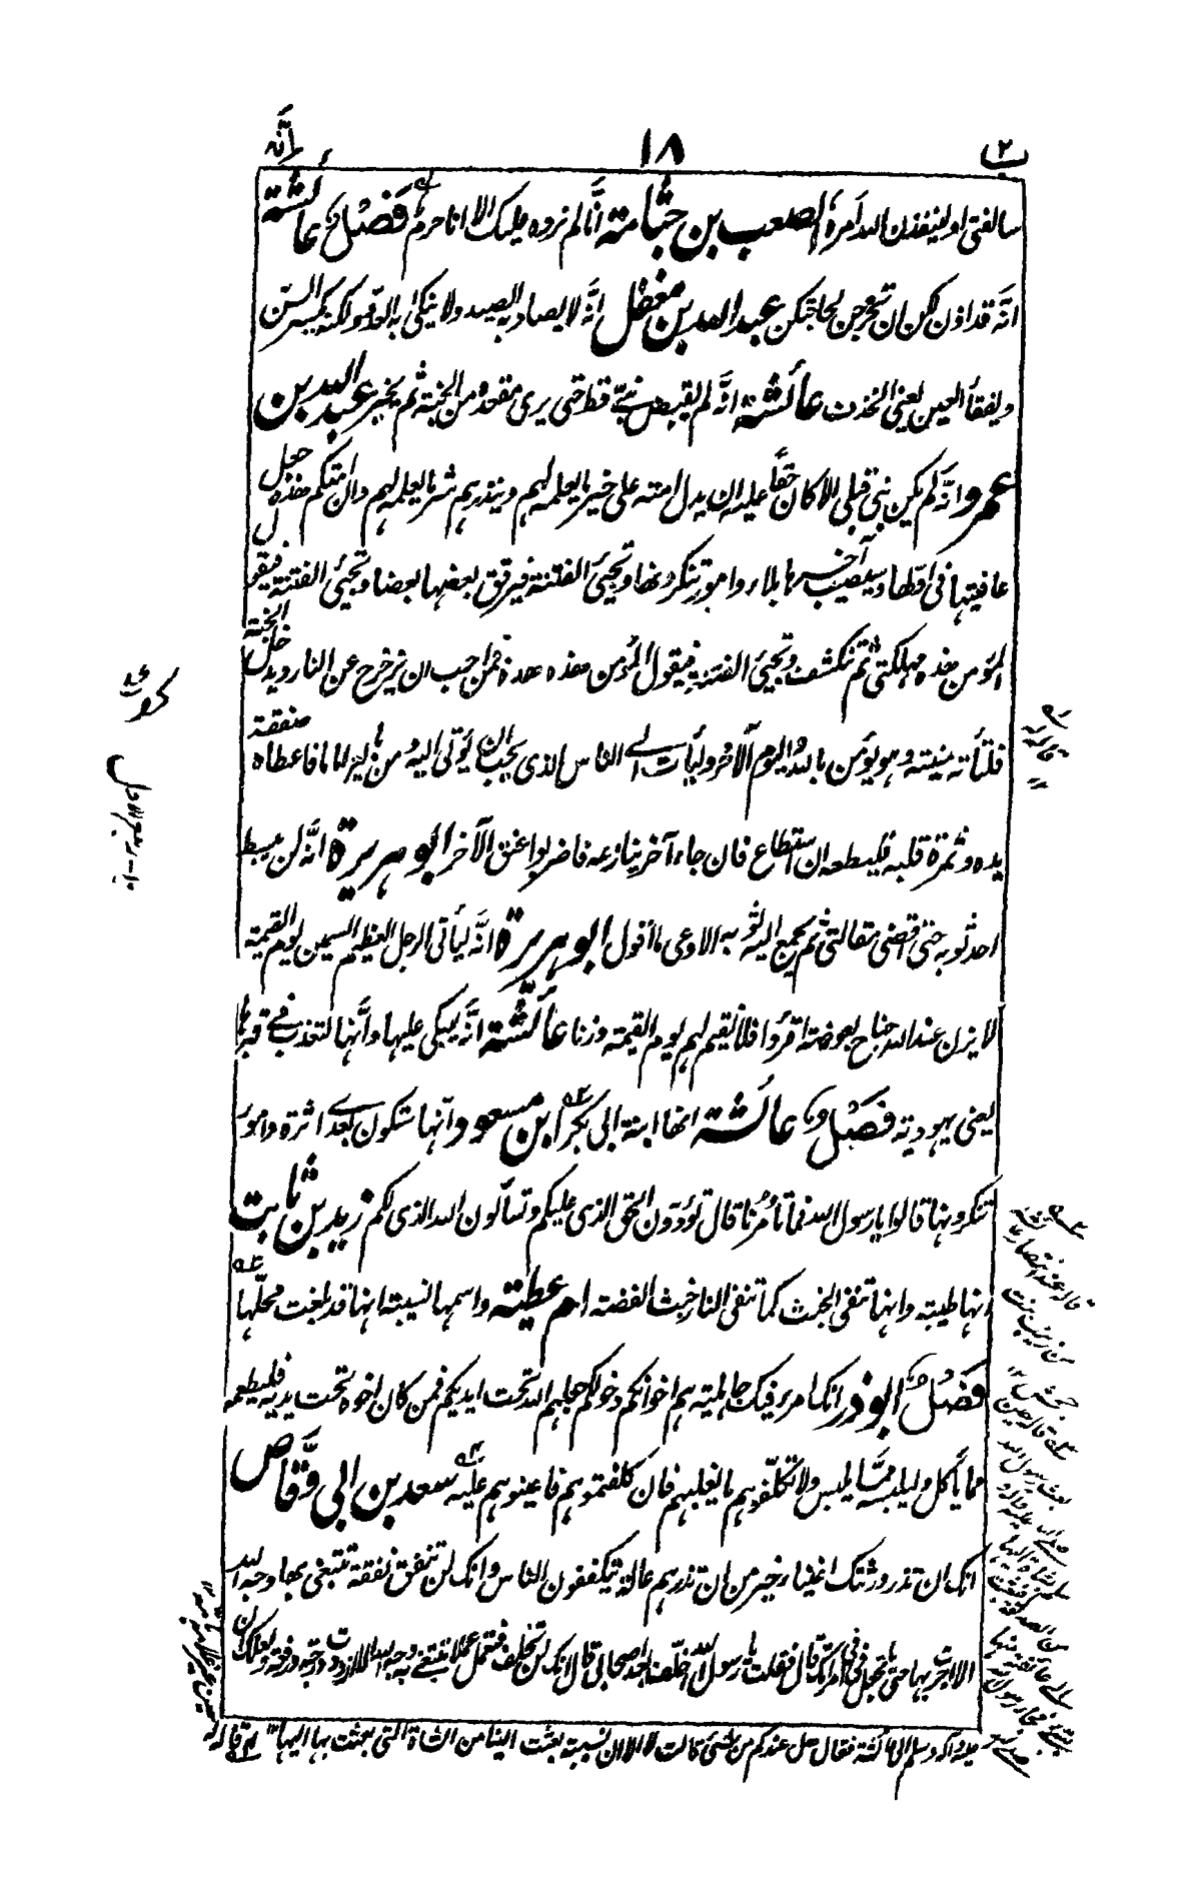 ٢ ١٨ انّه
سالفتى اولينفذن الله امره الصعب بن جثّامة انّا لم نرده عليك الا انا حرم فَصْل عائشة
انّه قد اذن لكن ان تخرجن لحاجتكن عبد الله بن مغفّل انّه لا يصاد به الصيد ولا ينكى به العدو ولكنه يكسر السن
ويفقأ العين يعنى الخذف عائشة انّه لم يقبض نبيّ قط حتى يرى مقعده من الجنة ثم يخير عبد الله بن
عمرو انّه لم يكن نبى قبلى الا كان حقّا عليه ان يدل امته على خير ما يعلمه لهم وينذرهم شر ما يعلمه لهم وان امتكم هذه جعل
عافيتها فى اوّلها وسيصيب آخرها بلاء وامور تنكرونها وتجيئ الفتنة فيرقق بعضها بعضا وتجيئ الفتنة فيقول
المؤمن هذه مهلكتى ثم تنكشف وتجيئ الفتنة فيقول المؤمن هذه هذه فمن احب ان يزحزح عن النار ويدخل الجنة
فلتأته منيته وهو يؤمن بالله واليوم الآخر وليأت الى الناس الذى يحب ان يؤتى اليه ومن بايع اماما فاعطاه صفقة
يده وثمرة قلبه فليطعه ان استطاع فان جاء آخر ينازعه فاضربوا عنق الآخر ابو هريرة انّه لن يبسط
احد ثوبه حتى اقضى مقالتى ثم يجمع اليه ثوبه الا وعى ما اقول ابو هريرة انّه ليأتى الرجل العظيم السمين يوم القيمة
لا يزن عند الله جناح بعوضة اقرؤا فلا نقيم لهم يوم القيمة وزنا عائشة انّه ليبكى عليها وانّها لتعذب فى قبرها
يعنى يهودية فَصْل عائشة انها ابنة ابى بكر ابن مسعود انّها ستكون بعدى اثرة وامور
تنكرونها قالوا يا رسول الله فما تأمُرُنا قال تؤدّون الحق الذى عليكم وتسألون الله الذى لكم زيد بن ثابت
انها طيبة وانها تنفى الخبث كما تنفى النار خبث الفضة ام عطية واسمها نسيبة انها قد بلغت محلّها
فَصْل ابو ذر انك امرء فيك جاهلية هم اخوانكم وخولكم جعلهم الله تحت ايديكم فمن كان اخوه تحت يديه فليطعمه
مما يأكل وليلبسه ممّا يلبس ولا تكلّفوهم ما يغلبهم فان كلفتموهم فاعينوهم عليه سعد بن ابى وقّاص
انك ان تذر ورثتك اغنياء خير من ان تذرهم عالة يتكففون الناس وانك لن تنفق نفقة تبتغى بها وجه الله
الا اجرت بها حتى ما تجعل فى فى امرأتك قال فقلت يا رسول الله اخلّف بعد اصحابى قال انك لن تخلف فتعمل عملا تبتغى به وجه الله الا ازددت به درجة ورفعة ولعلك ان
عليه وآله وسلم الى عائشة فقال هل عندكم من شئ قالت لا الا ان نسيبة بعثت الينا من الشاة التى بعثت بها اليها